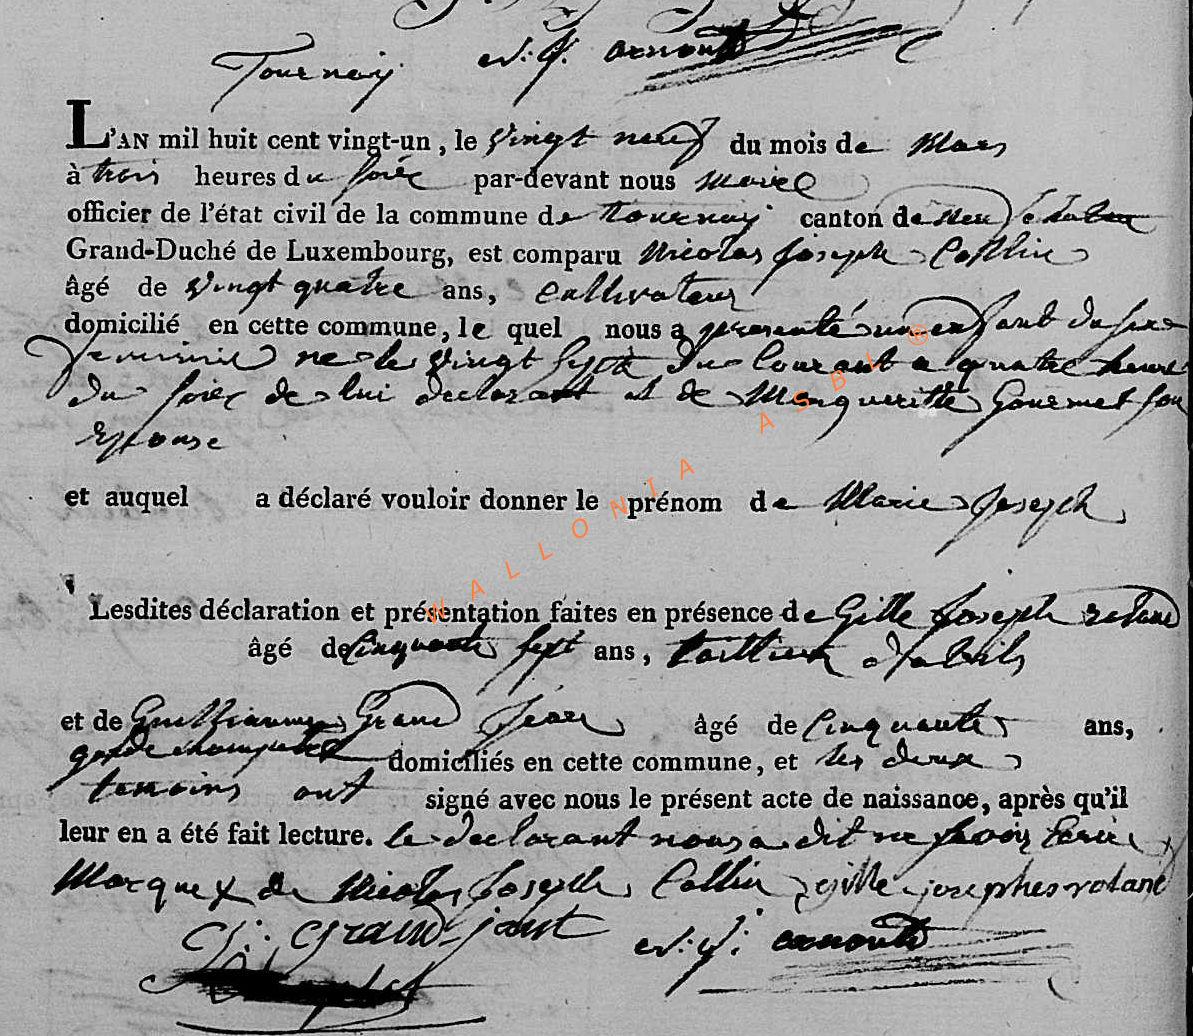 Tournay N: J: arnould
L'AN mil huit cent vingt-un, le vingt neuf du mois de Mars
à trois heures du soire par-devant nous maire
officier de l'état civil de la commune de tournay canton de neu fchateau
Grand-Duché de Luxembourg, est comparu Nicolas Joseph Collin
âgé de vingt quatre ans, cultivateur
domicilié en cette commune, le quel nous a presenté un enfant du sexe
feminin ne le vingt sept du courant a quatre heure
du soire de lui declarant et de Margueritte Gourmet son
Epouse
et auquel a déclaré vouloir donner le prénom de Marie Joseph
Lesdites déclaration et présentation faites en présence de Gille Joseph
âgé de Cinquante sept ans, taillieur d'abits
et de Guilliaume Grand Jean âgé de Cinquante ans,
garde champetre domiciliés en cette commune, et les deux
temoins ont signé avec nous le présent acte de naissance, après qu'il
leur en a été fait lecture. le declarant nous a dit ne savoir Ecrire
Marque x de Nicolas Joseph Collin gille josephe
G: grand-jean N: J: arnould
WALLONIA ASBL ®